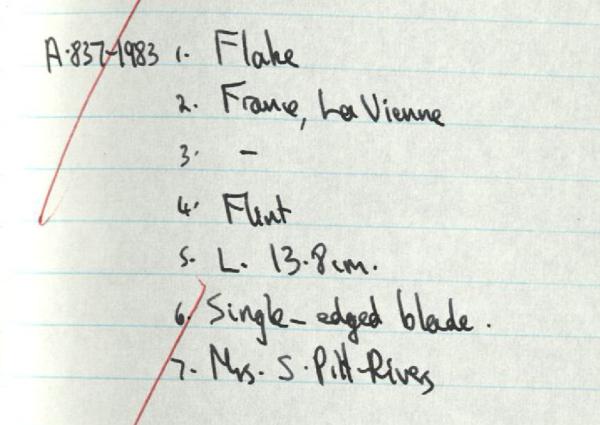 A.837-1983 1. Flake
2. France, La Vienne
3. -
4. Flint
5. L. 13.8cm.
6. Single-edged blade.
7. Mrs. S. Pitt-Rivers